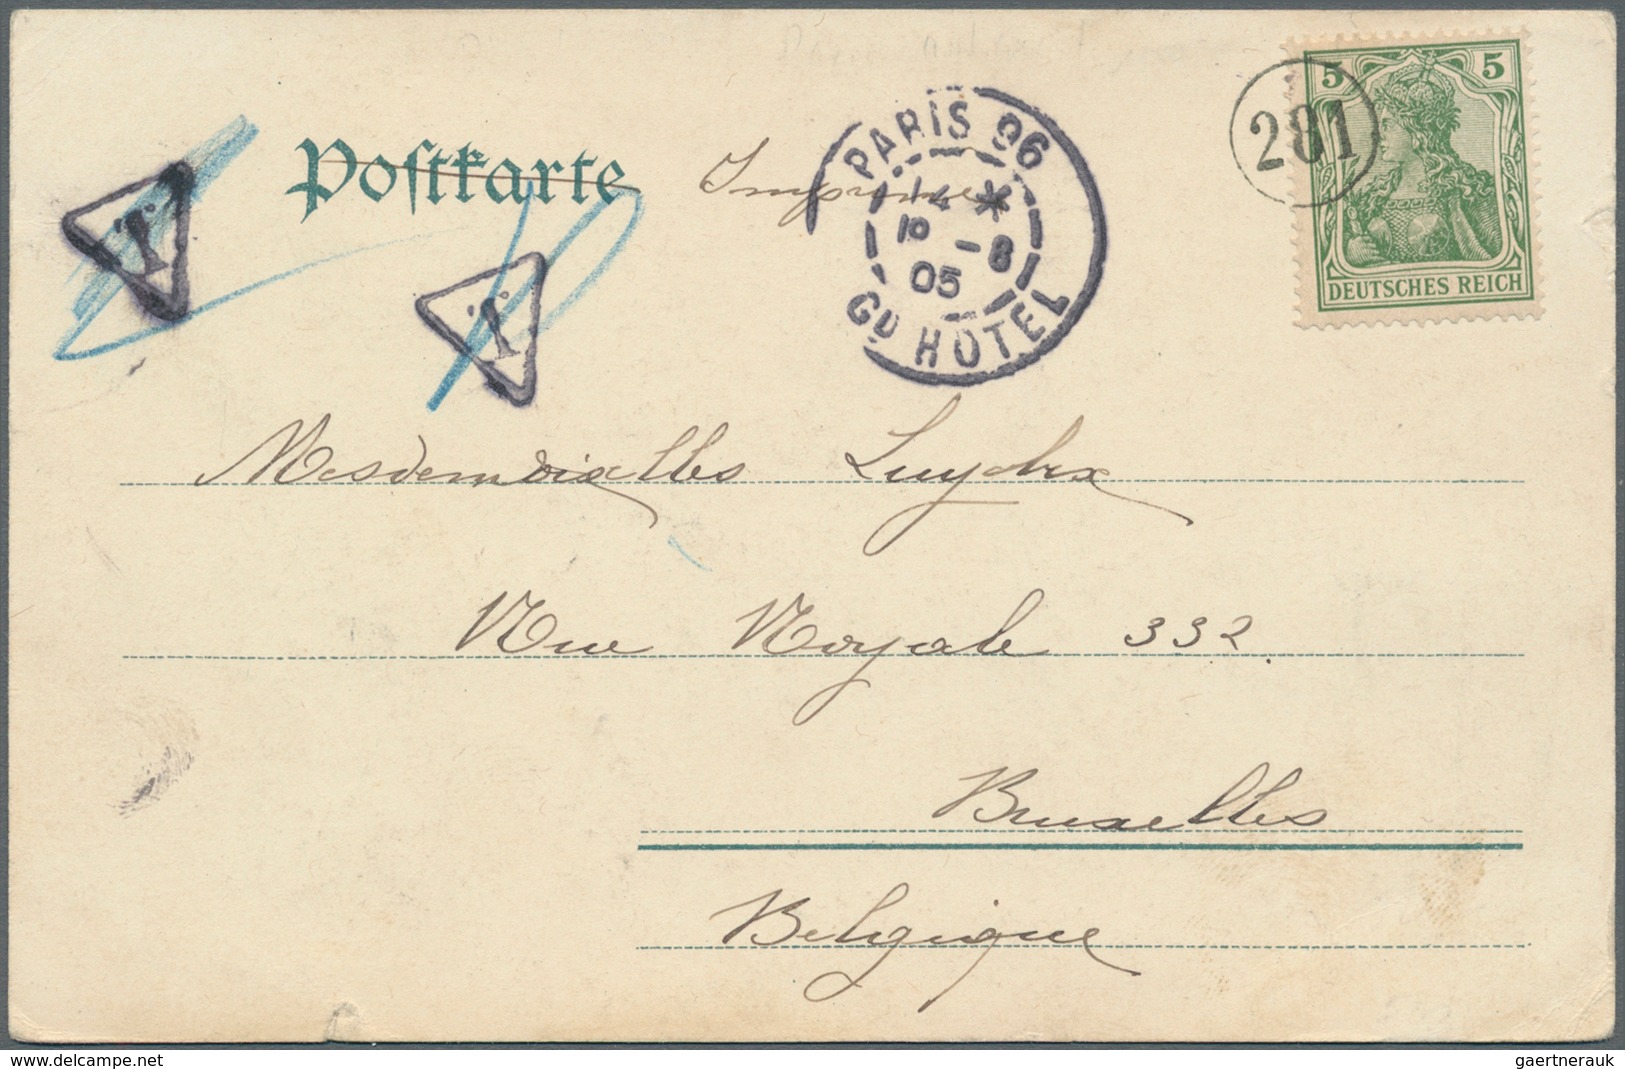 5 5
281
DEUTSCHES REICH
Postkarte
Imprimé
PARIS 96
14 *
-8
05
GD HOTEL
T
T
Mesdemoiselles Luyckx
Rue Royale 332.
Bruxelles
Belgique
delcampe.net
gaertnerauk